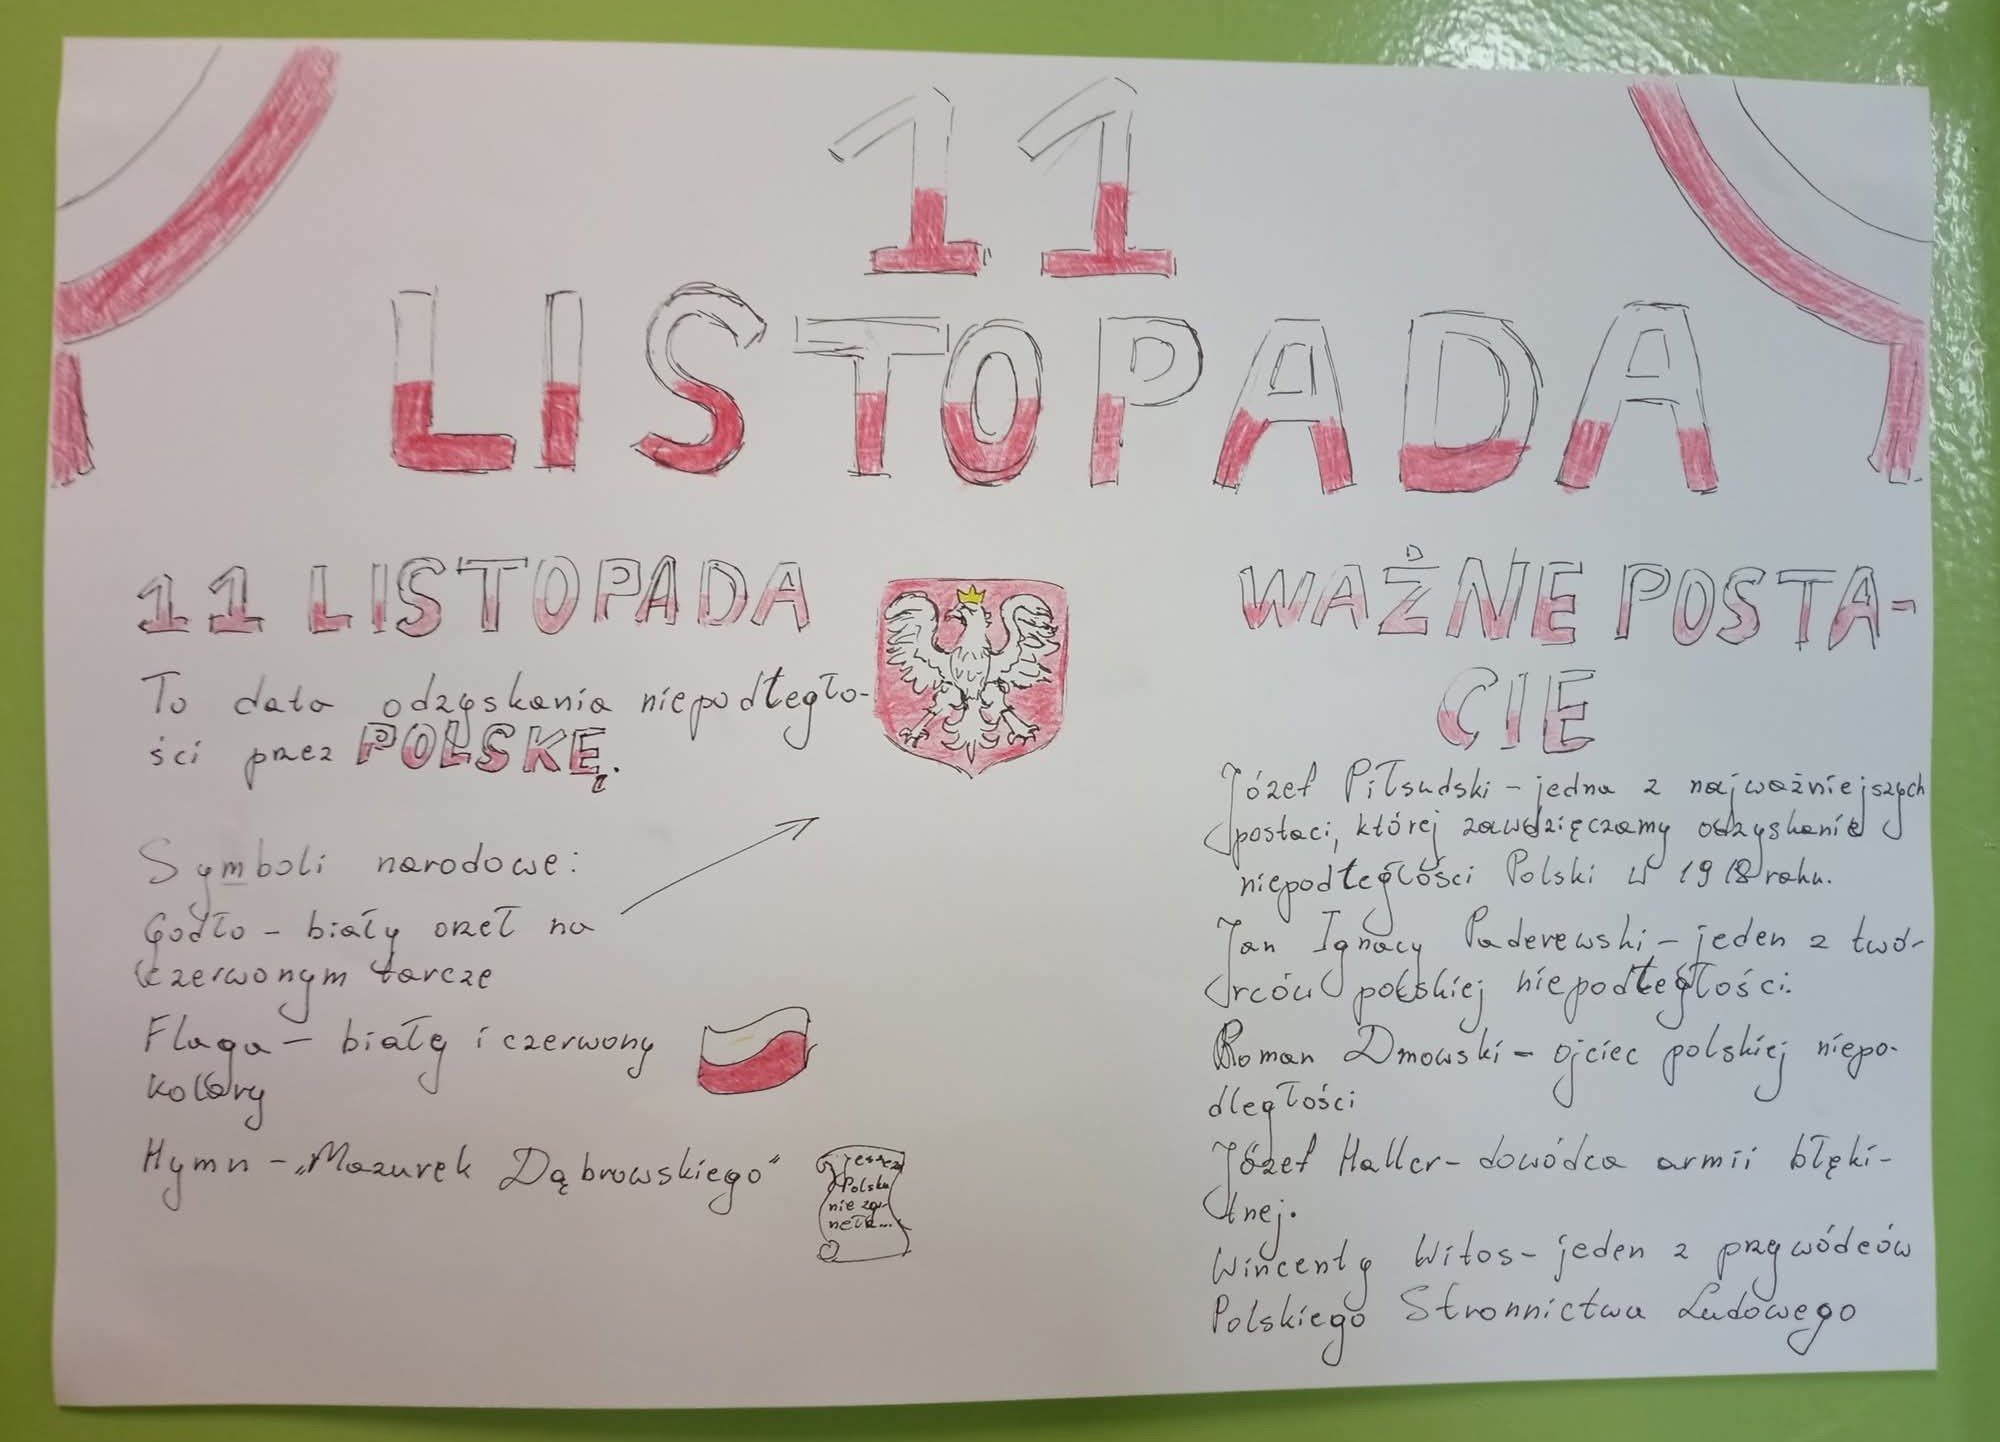 11
LISTOPADA
11 LISTOPADA
To data odzyskania niepodległo-
ści przez POLSKĘ.
Symboli narodowe:
Godło - biały orzeł na
czerwonym tarcze
Flaga - biały i czerwony
kolory
Hymn - „Mazurek Dąbrowskiego"
Jeszcze
Polska
nie zgi-
neła...
WAŻNE POSTA-
CIE
Józef Piłsudski - jedna z najważniejszych
postaci, której zawdzięczamy odzyskanie
niepodległości Polski w 1918 roku.
Jan Ignacy Paderewski - jeden z twó-
rców polskiej niepodległości.
Roman Dmowski - ojciec polskiej niepo-
dległości
Józef Haller - dowódca armii błęki-
tnej.
Wincenty Witos - jeden z przywódców
Polskiego Stronnictwa Ludowego